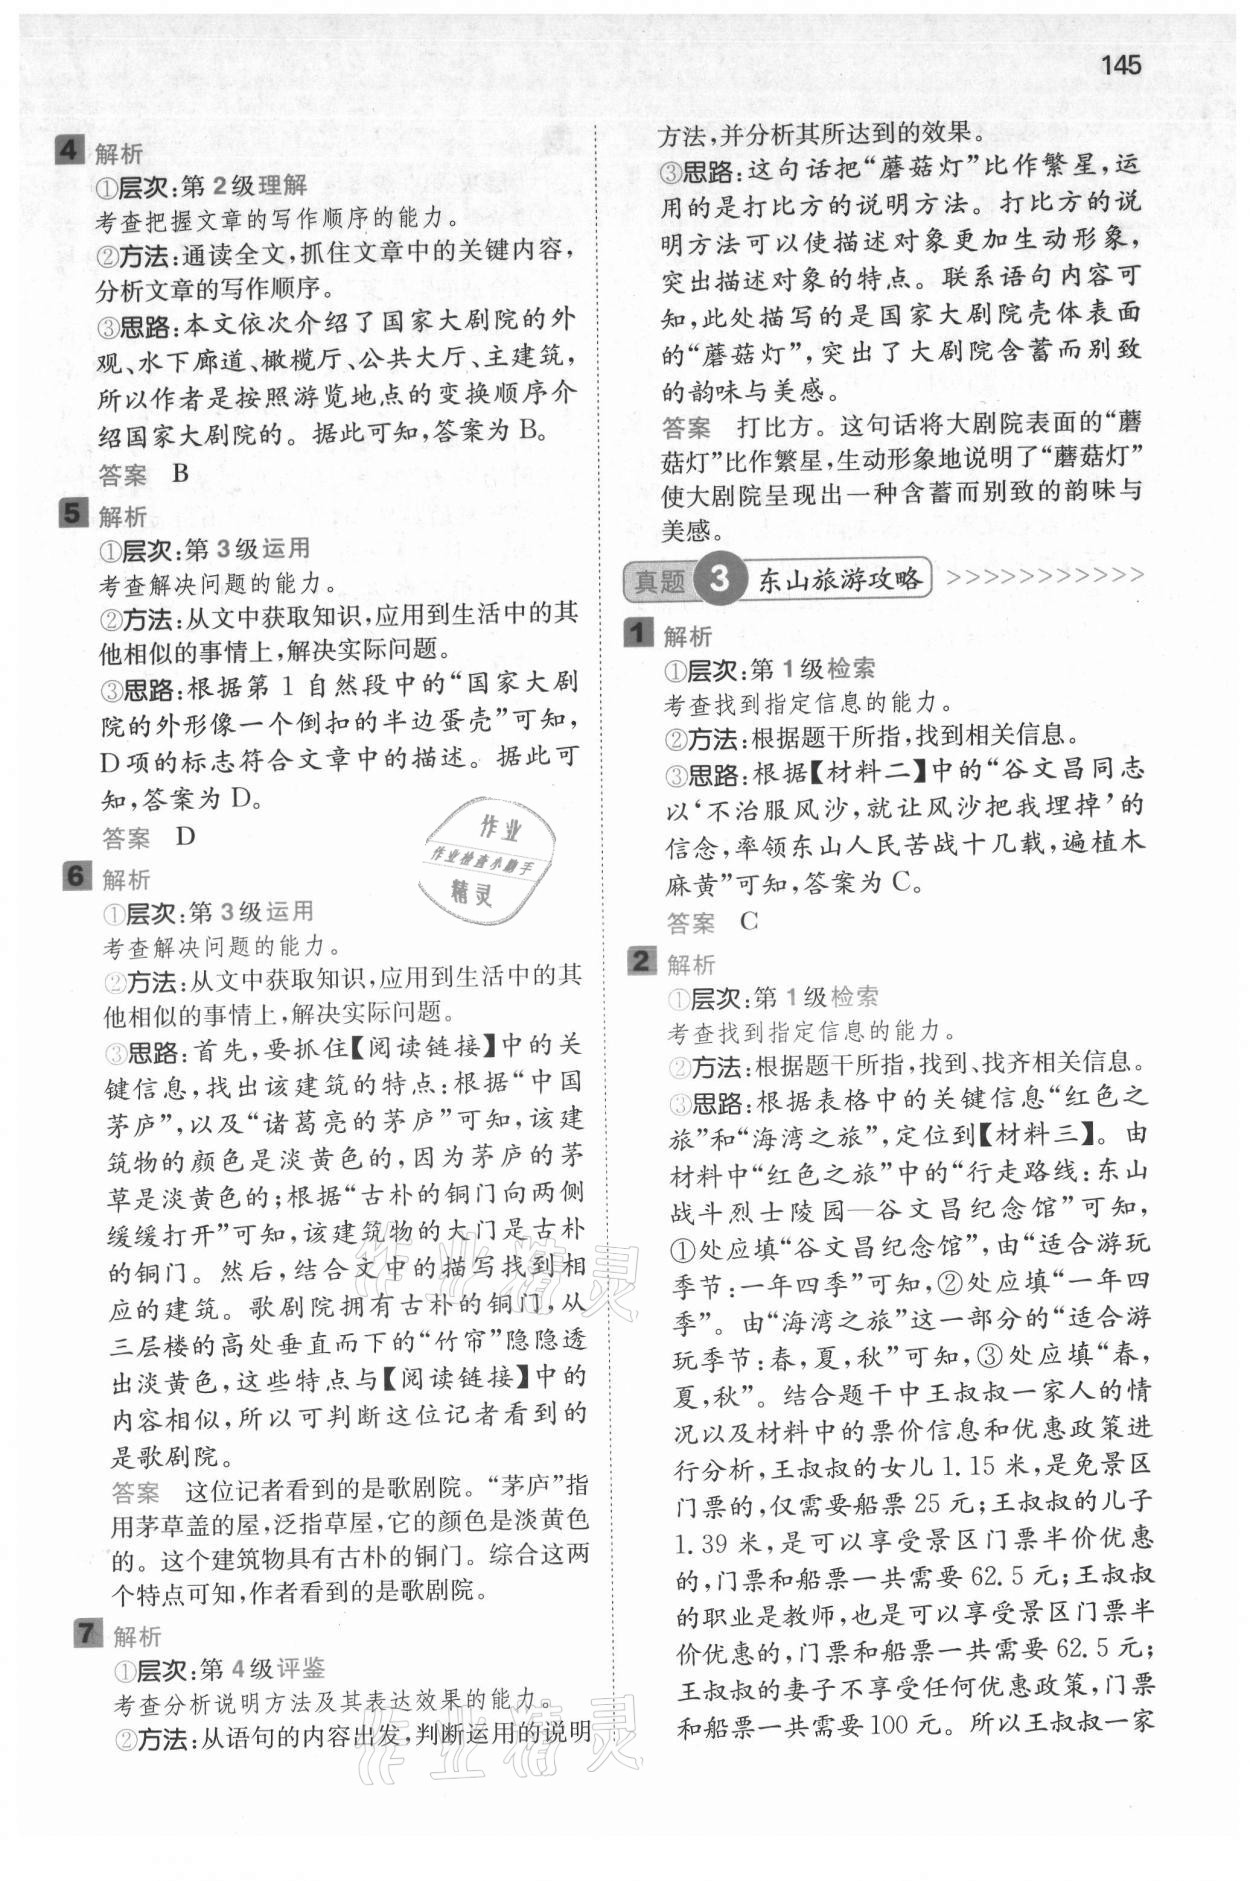 145
4 解析
①层次:第2级理解
考查把握文章的写作顺序的能力。
②方法:通读全文,抓住文章中的关键内容,
分析文章的写作顺序。
③思路:本文依次介绍了国家大剧院的外
观、水下廊道、橄榄厅、公共大厅、主建筑,
所以作者是按照游览地点的变换顺序介
绍国家大剧院的。据此可知,答案为 B。
答案 B
5 解析
①层次:第3级运用
考查解决问题的能力。
②方法:从文中获取知识,应用到生活中的其
他相似的事情上,解决实际问题。
③思路:根据第 1 自然段中的“国家大剧
院的外形像一个倒扣的半边蛋壳”可知,
D项的标志符合文章中的描述。据此可
知,答案为 D。
答案 D
6 解析
①层次:第3级运用
考查解决问题的能力。
②方法:从文中获取知识,应用到生活中的其
他相似的事情上,解决实际问题。
③思路:首先,要抓住【阅读链接】中的关
键信息,找出该建筑的特点:根据“中国
茅庐”,以及“诸葛亮的茅庐”可知,该建
筑物的颜色是淡黄色的,因为茅庐的茅
草是淡黄色的;根据“古朴的铜门向两侧
缓缓打开”可知,该建筑物的大门是古朴
的铜门。然后,结合文中的描写找到相
应的建筑。歌剧院拥有古朴的铜门,从
三层楼的高处垂直而下的“竹帘”隐隐透
出淡黄色,这些特点与【阅读链接】中的
内容相似,所以可判断这位记者看到的
是歌剧院。
答案 这位记者看到的是歌剧院。“茅庐”指
用茅草盖的屋,泛指草屋,它的颜色是淡黄色
的。这个建筑物具有古朴的铜门。综合这两
个特点可知,作者看到的是歌剧院。
7 解析
①层次:第4级评鉴
考查分析说明方法及其表达效果的能力。
②方法:从语句的内容出发,判断运用的说明
方法,并分析其所达到的效果。
③思路:这句话把“蘑菇灯”比作繁星,运
用的是打比方的说明方法。打比方的说
明方法可以使描述对象更加生动形象,
突出描述对象的特点。联系语句内容可
知,此处描写的是国家大剧院壳体表面
的“蘑菇灯”,突出了大剧院含蓄而别致
的韵味与美感。
答案 打比方。这句话将大剧院表面的“蘑
菇灯”比作繁星,生动形象地说明了“蘑菇灯”
使大剧院呈现出一种含蓄而别致的韵味与
美感。
真题 3 东山旅游攻略 >>>>>>>>>>>
1 解析
①层次:第1级检索
考查找到指定信息的能力。
②方法:根据题干所指,找到相关信息。
③思路:根据【材料二】中的“谷文昌同志
以‘不治服风沙,就让风沙把我埋掉’的
信念,率领东山人民苦战十几载,遍植木
麻黄”可知,答案为 C。
答案 C
2 解析
①层次:第1级检索
考查找到指定信息的能力。
②方法:根据题干所指,找到、找齐相关信息。
③思路:根据表格中的关键信息“红色之
旅”和“海湾之旅”,定位到【材料三】。由
材料中“红色之旅”中的“行走路线:东山
战斗烈士陵园—谷文昌纪念馆”可知,
①处应填“谷文昌纪念馆”,由“适合游玩
季节:一年四季”可知,②处应填“一年四
季”。由“海湾之旅”这一部分的“适合游
玩季节:春,夏,秋”可知,③处应填“春,
夏,秋”。结合题干中王叔叔一家人的情
况以及材料中的票价信息和优惠政策进
行分析,王叔叔的女儿1.15米,是免景区
门票的,仅需要船票25元;王叔叔的儿子
1.39米,是可以享受景区门票半价优惠
的,门票和船票一共需要62.5元;王叔叔
的职业是教师,也是可以享受景区门票半
价优惠的,门票和船票一共需要62.5元;
王叔叔的妻子不享受任何优惠政策,门票
和船票一共需要100元。所以王叔叔一家
作业
作业检查小助手
精灵
作业精灵
作业精灵